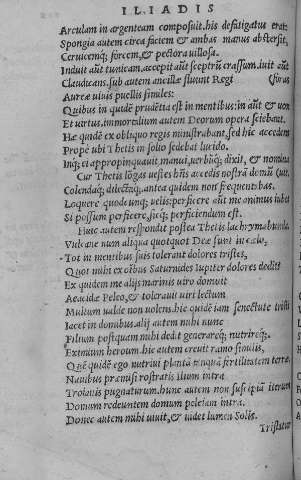 ILIADIS
Arculam in argenteam composuit. his defatigatus erat.
Spongia autem circa faciem & ambas manus abstersit,
Ceruicemq; fortem, & pectora uillosa.
Induit aūt tunicam, accepit aūt sceptrū crassum, iuit aūt
Claudicans. sub autem ancillæ fluunt Regi
Aureæ uiuis puellis similes:
Quibus in quidē prudētia est in mentibus: in aūt & uox
Et uirtus, immortalium autem Deorum opera sciebant.
Hæ quidē ex obliquo regis ministrabant, sed hic accedens
Prope ubi Thetis in solio sedebat lucido.
Inq; ei appropinquauit manui, uerbūq; dixit, & nomina
Cur Thetis lōgas uestes hn̄s accedis nostrā domū
Colendaq; dilectaq;. antea quidem non frequentabas.
Loquere quodcunq; uelis: perficere aūt me animus iubet
Si possum perficere, sicq; perficiendum est.
Huic autem respondit postea Thetis lachrymabunda
Vulcane num aliqua quotquot Deæ sunt in cælo,
Tot in mentibus suis tolerauit dolores tristes,
Quot mihi ex oībus Saturnides Iupiter dolores dedit
Ex quidem me alijs marinis uiro domuit
Aeacidæ Peleo, & toleraui uiri lectum
Multum ualde non uolens. hic quidē iam senectute tristi
Iacet in domibus. alij autem mihi nunc
Filium postquam mihi dedit generareq; nutrireq;.
Eximium heroum. hic autem creuit ramo similis,
Quē quidē ego nutriui plantā tanquā fertilitatem terræ
Nauibus præmisi rostratis ilium intra
Troianis pugnaturum. hunc autem non suscipiā iterum
Domum redeuntem domum peleiam intra.
Donec autem mihi uiuit, & uidet lumen Solis.
Tristatur